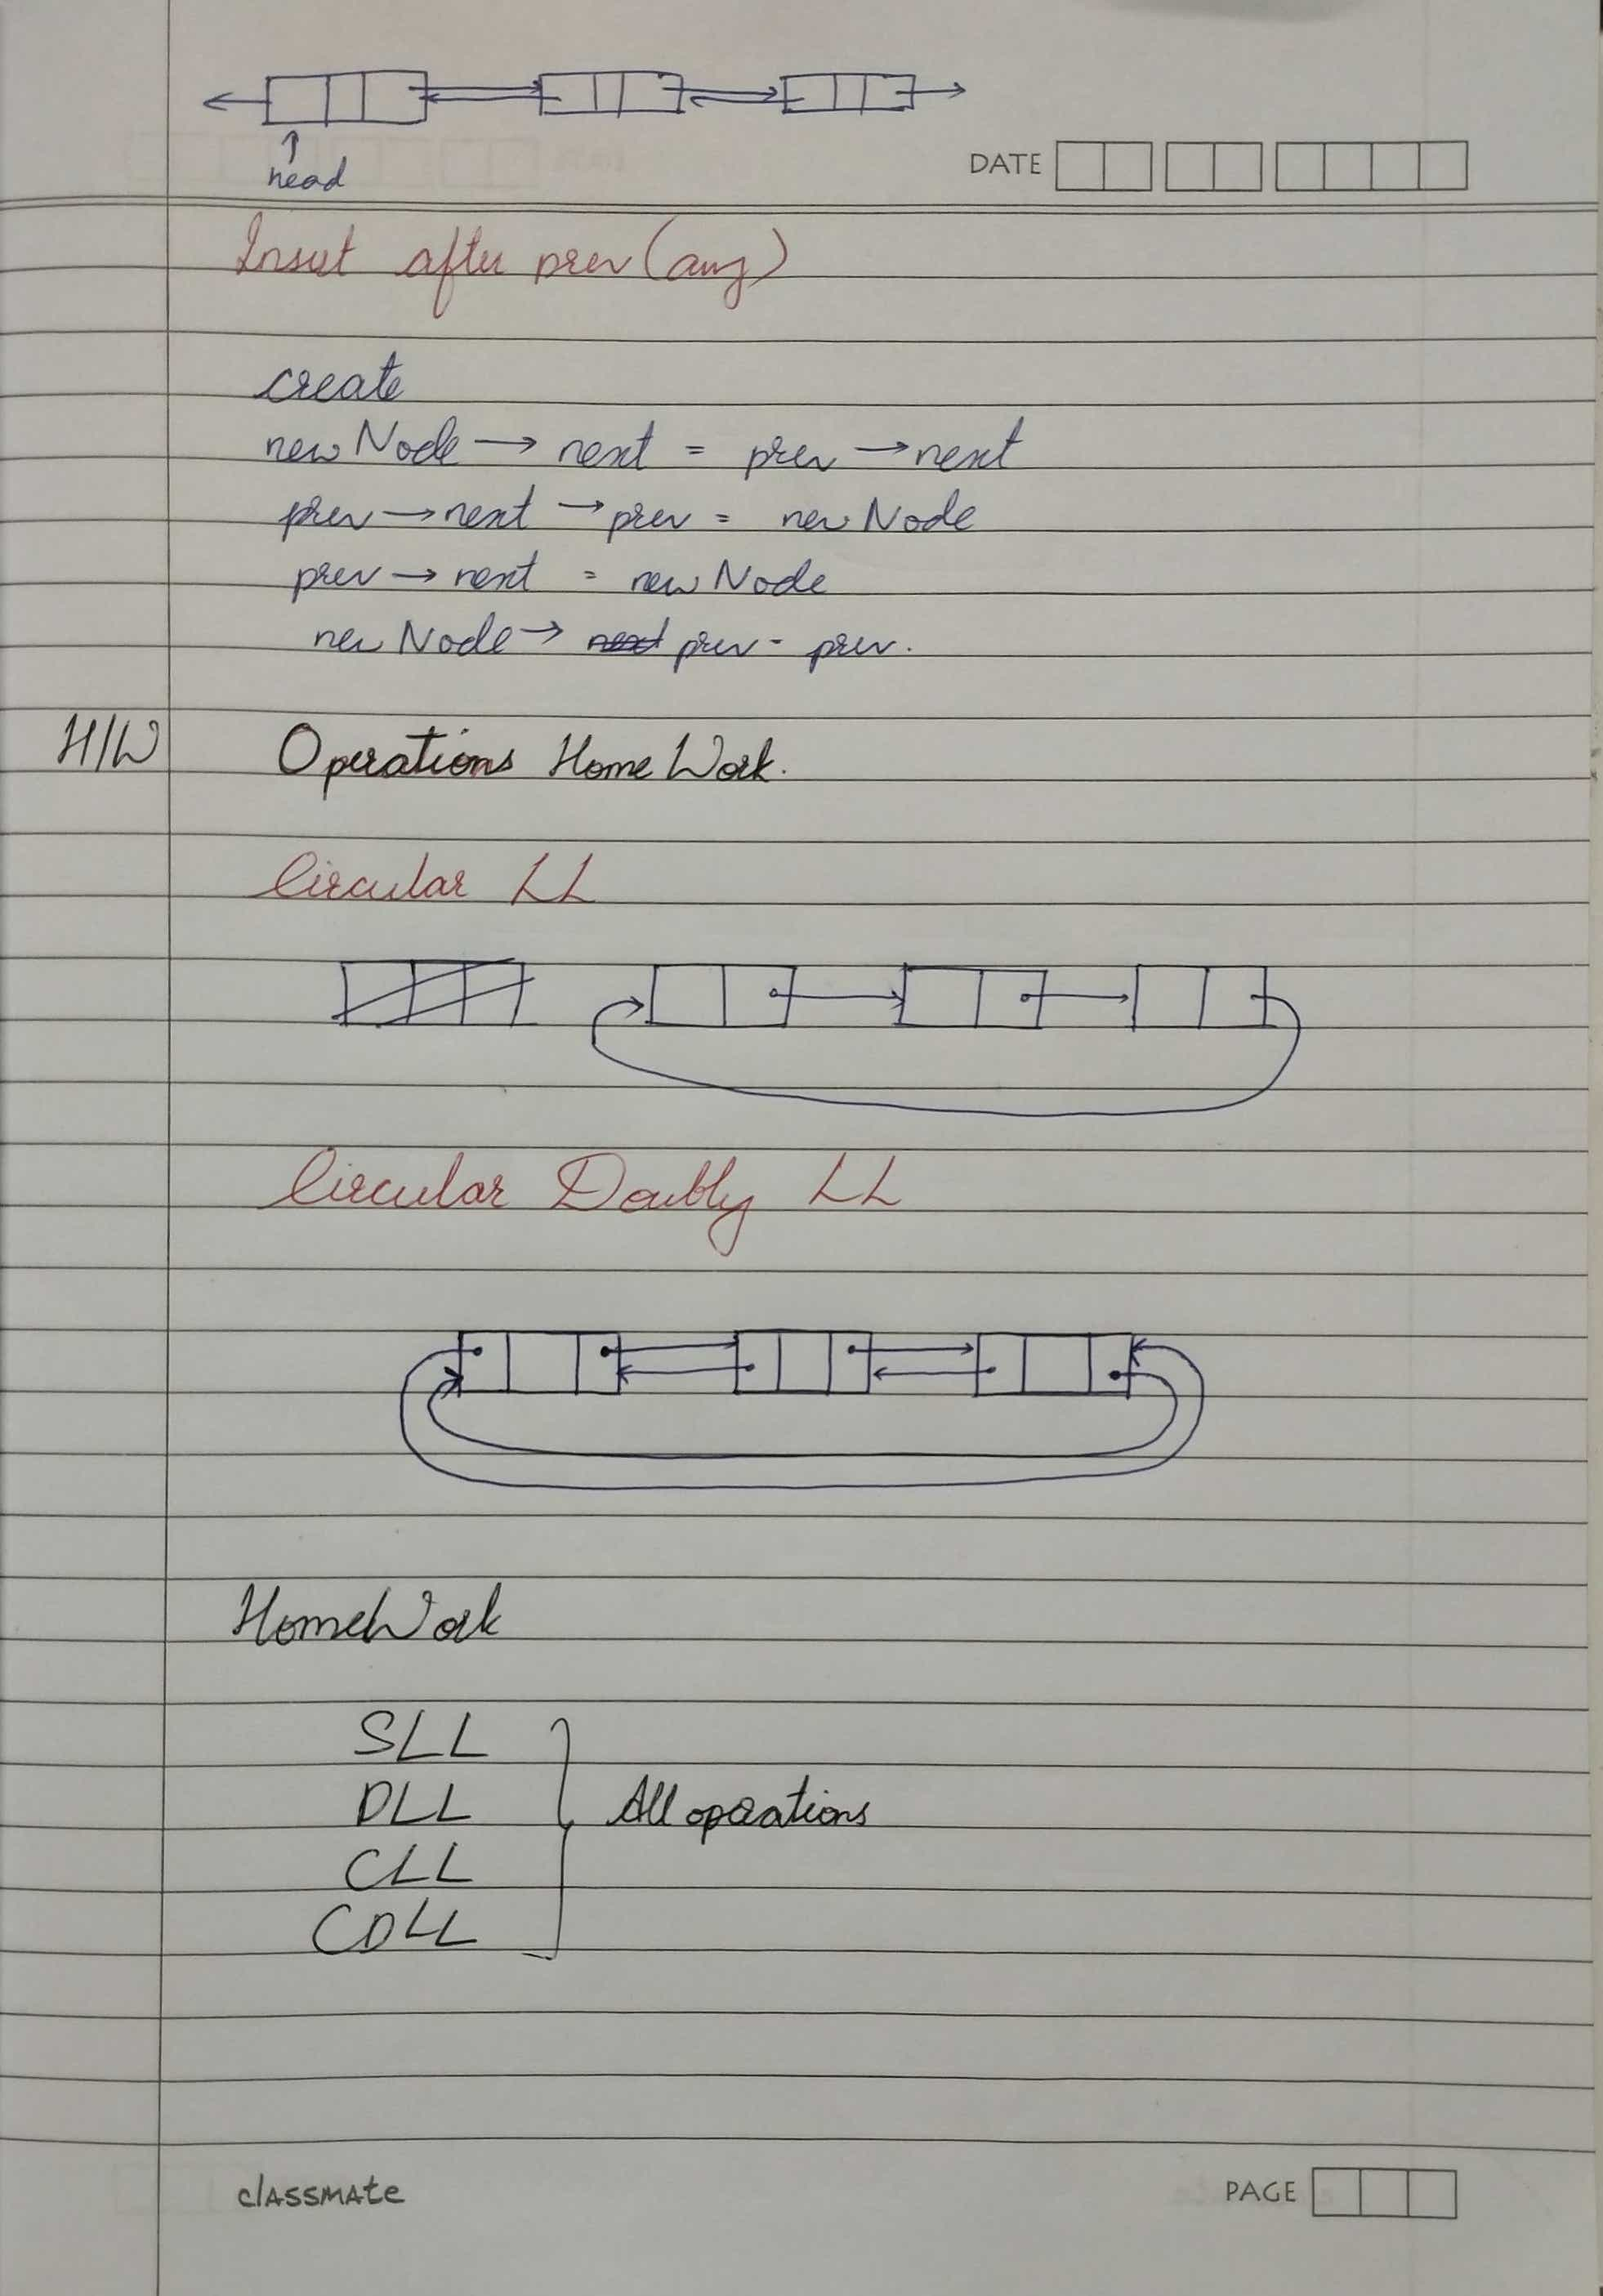 head
DATE
Insert after prev (any)
create
newNode → next = prev → next
prev → next → prev = newNode
prev → next = newNode
newNode → next prev = prev.
H/W Operations HomeWork.
Circular LL
Circular Doubly LL
HomeWork
SLL
DLL
All operations
CLL
CDLL
classmate
PAGE